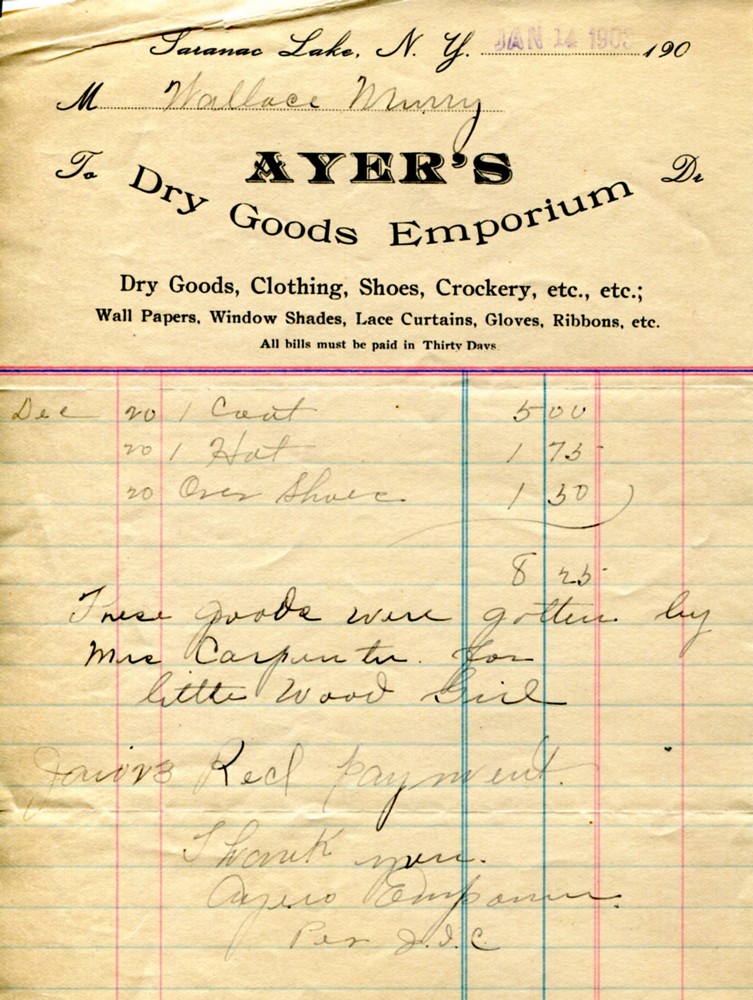 Saranac Lake, N. Y. JAN 14 1903 190
M Wallace Murry
To AYER'S Dr
Dry Goods Emporium
Dry Goods, Clothing, Shoes, Crockery, etc., etc.;
Wall Papers, Window Shades, Lace Curtains, Gloves, Ribbons, etc.
All bills must be paid in Thirty Days
Dec 20 1 Coat 5 00
20 1 Hat 1 75
20 Over Shoes 1 50
8 25
These goods were gotten by
Mrs Carpenter. for
little Wood Girl
Recd payment.
Thank you.
Ayers Emporium.
Per J.I.C